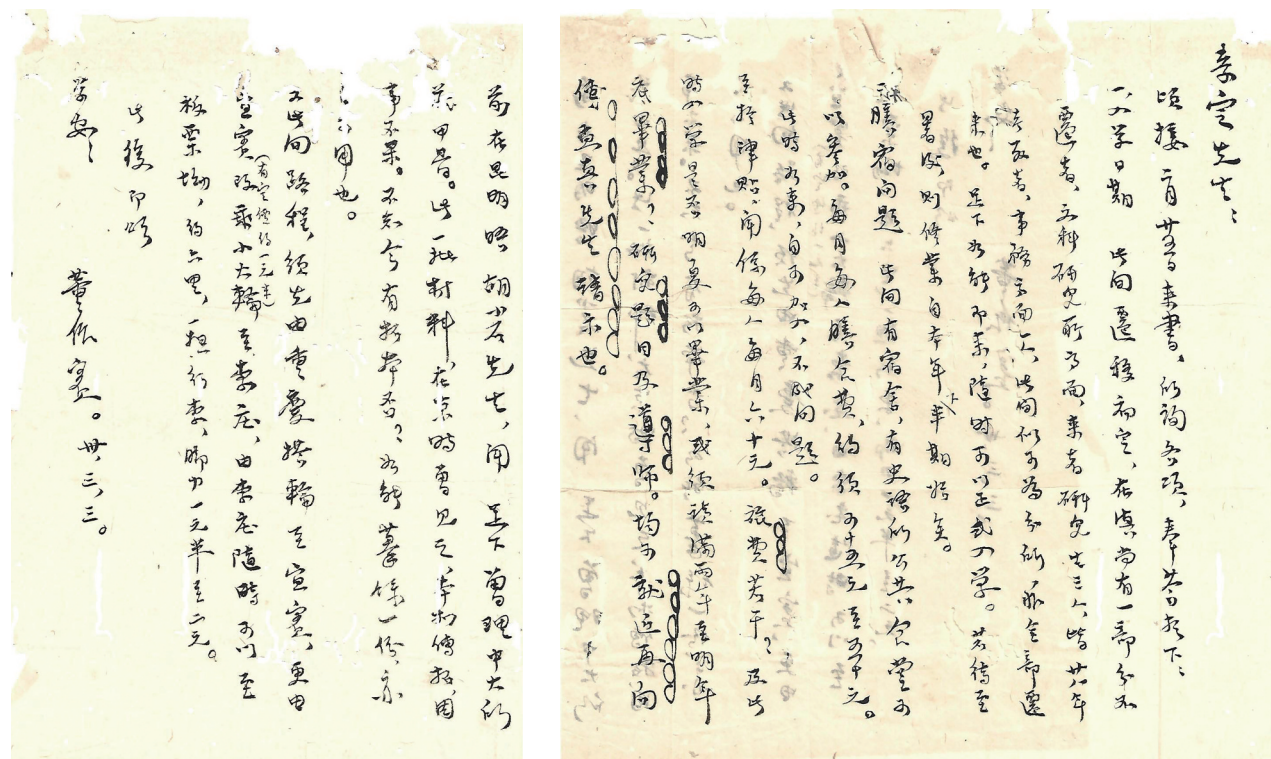 孝定先生：
頃接二月廿五日來書，所詢各項，奉答如下：
一 入學日期　此間遷移初定，在滇尚有一部分不
遷者，文科研究所為而，來者研究生三人，皆廿八年
考取者，事務方面一人，此間似可為分所，非全部遷
來也。足下如能即來，隨時可以正式入學。若待至
暑後，則修業自本年下半期始矣。
二 膳宿問題　此間有宿舍，有史語所公共食堂可
以參加。每月每人膳食費，約須四十五元至五十元。
如此時如來，自可加入，不成問題。
至於津貼，聞係每人每月六十元。旅費若干？及此
時入學是否明夏可以畢業，或須讀滿兩年至明年
底畢業？研究題目及導師。均可就近再向
傅孟真先生請示也。
前在昆明晤胡小石先生，聞足下曾理中大所
藏甲骨。此一批材料，在京時曾見之，牽制傳拓，因
事不果。不知今有拓本否？如能摹錄一份，亦
可用也。
又此間路程，須先由重慶搭輪至宜賓，更由
宜賓改乘小火輪（有定價約一元半）至李庄，由李庄隨時可以至
板栗坳，約六里，一挑行李，脚力一元半至二元。
此復即頌
學安
董作賓。卅、三、三。